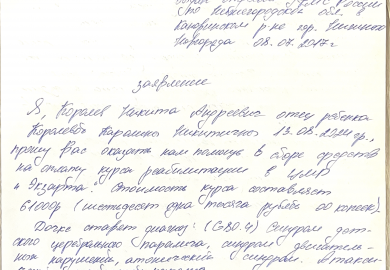 по Нижегородской обл. в
Канавинском р-не гор. Нижнего
Новгорода 08.07.2017г
заявление
Я, Королев Никита Андреевич отец ребенка
Королевой Каралины Никитичны 13.08. гр.,
прошу Вас оказать нам помощь в сборе средств
на оплату курса реабилитации в
"Экзарта". Стоимость курса составляет
61000р (шестидесят одна тысяча рублей 00 копеек).
Дочке ставят диагноз: (G80.4) Синдром дет-
ского церебрального паралича, синдром двигатель-
ных нарушений, атонический синдром. Атакси-